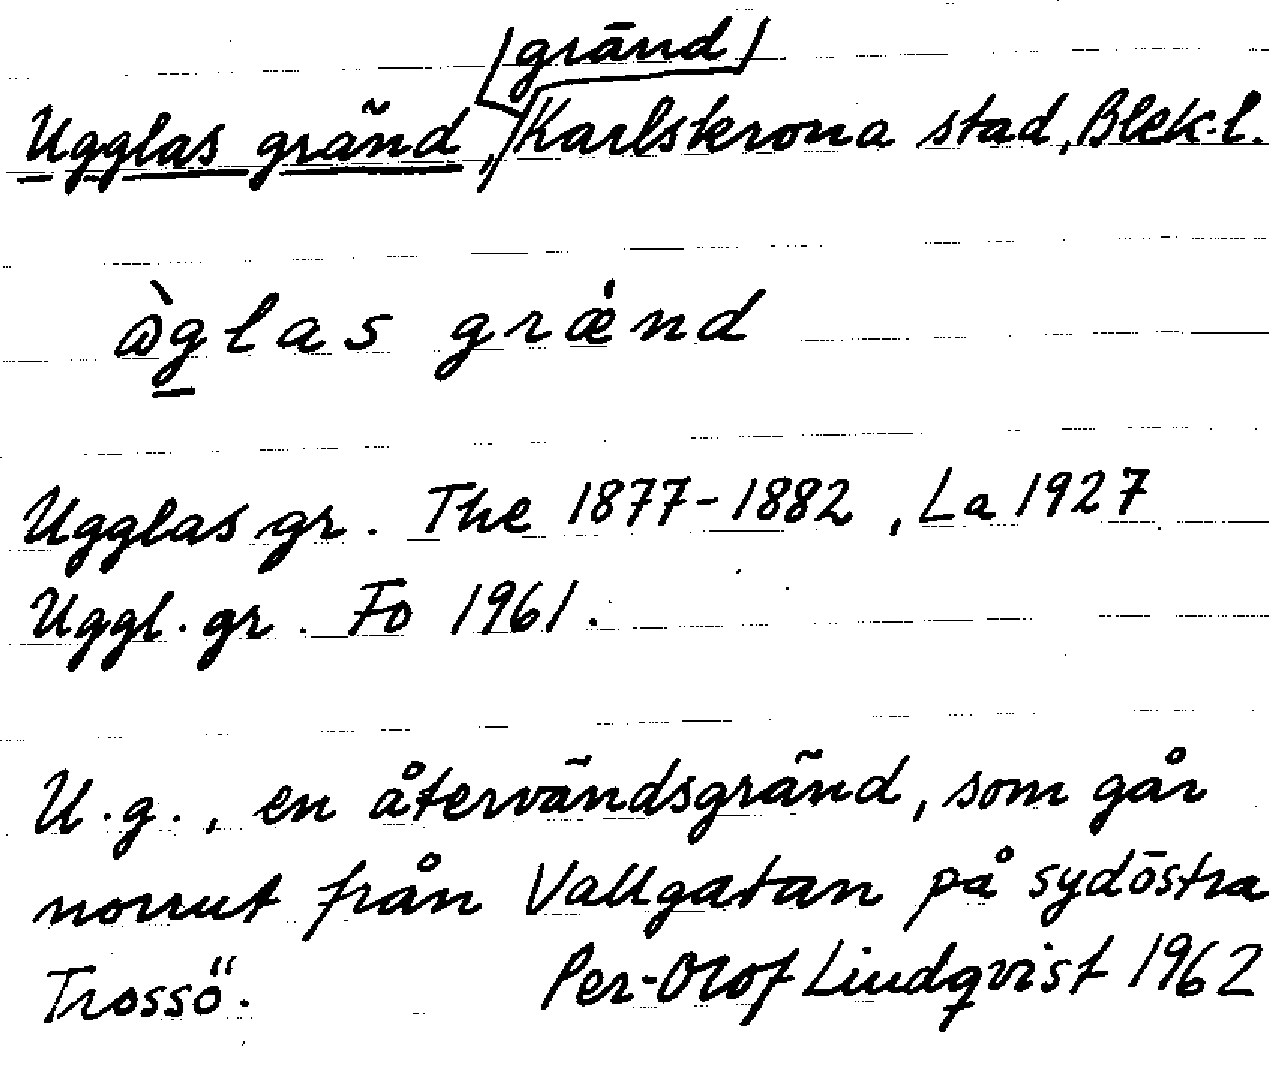 [gränd]
Ugglas gränd, Karlskrona stad, Blek. l.
àglas grǽnd
Ugglas gr. The 1877-1882, La 1927
Uggl. gr. Fo 1961.
U. g., en återvändsgränd, som går
norrut från Vallgatan på sydöstra
Trossö. Per-Olof Lindqvist 1962